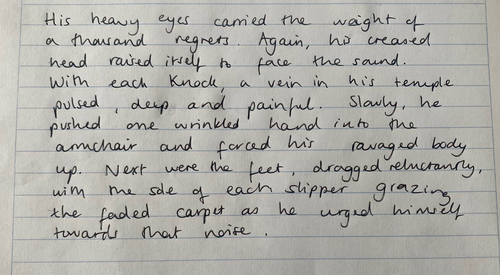 His heavy eyes carried the weight of
a thousand regrets. Again, his creased
head raised itself to face the sound.
With each knock, a vein in his temple
pulsed, deep and painful. Slowly, he
pushed one wrinkled hand into the
armchair and forced his ravaged body
up. Next were the feet, dragged reluctantly,
with the sole of each slipper grazing
the faded carpet as he urged himself
towards that noise.